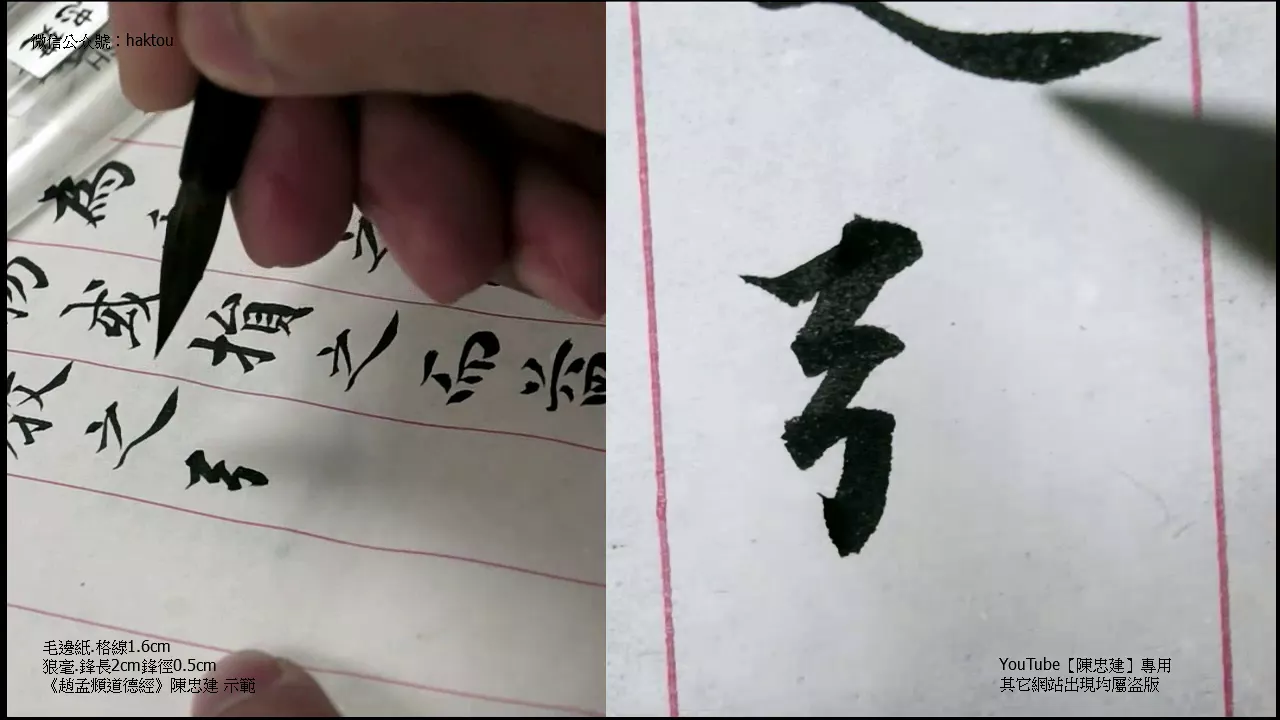 微信公众號：haktou
為
物或損之而益
教之弓
毛邊紙.格線1.6cm
狼毫.鋒長2cm鋒徑0.5cm
《趙孟頫道德經》陳忠建 示範
弓
YouTube［陳忠建］專用
其它網站出現均屬盜版